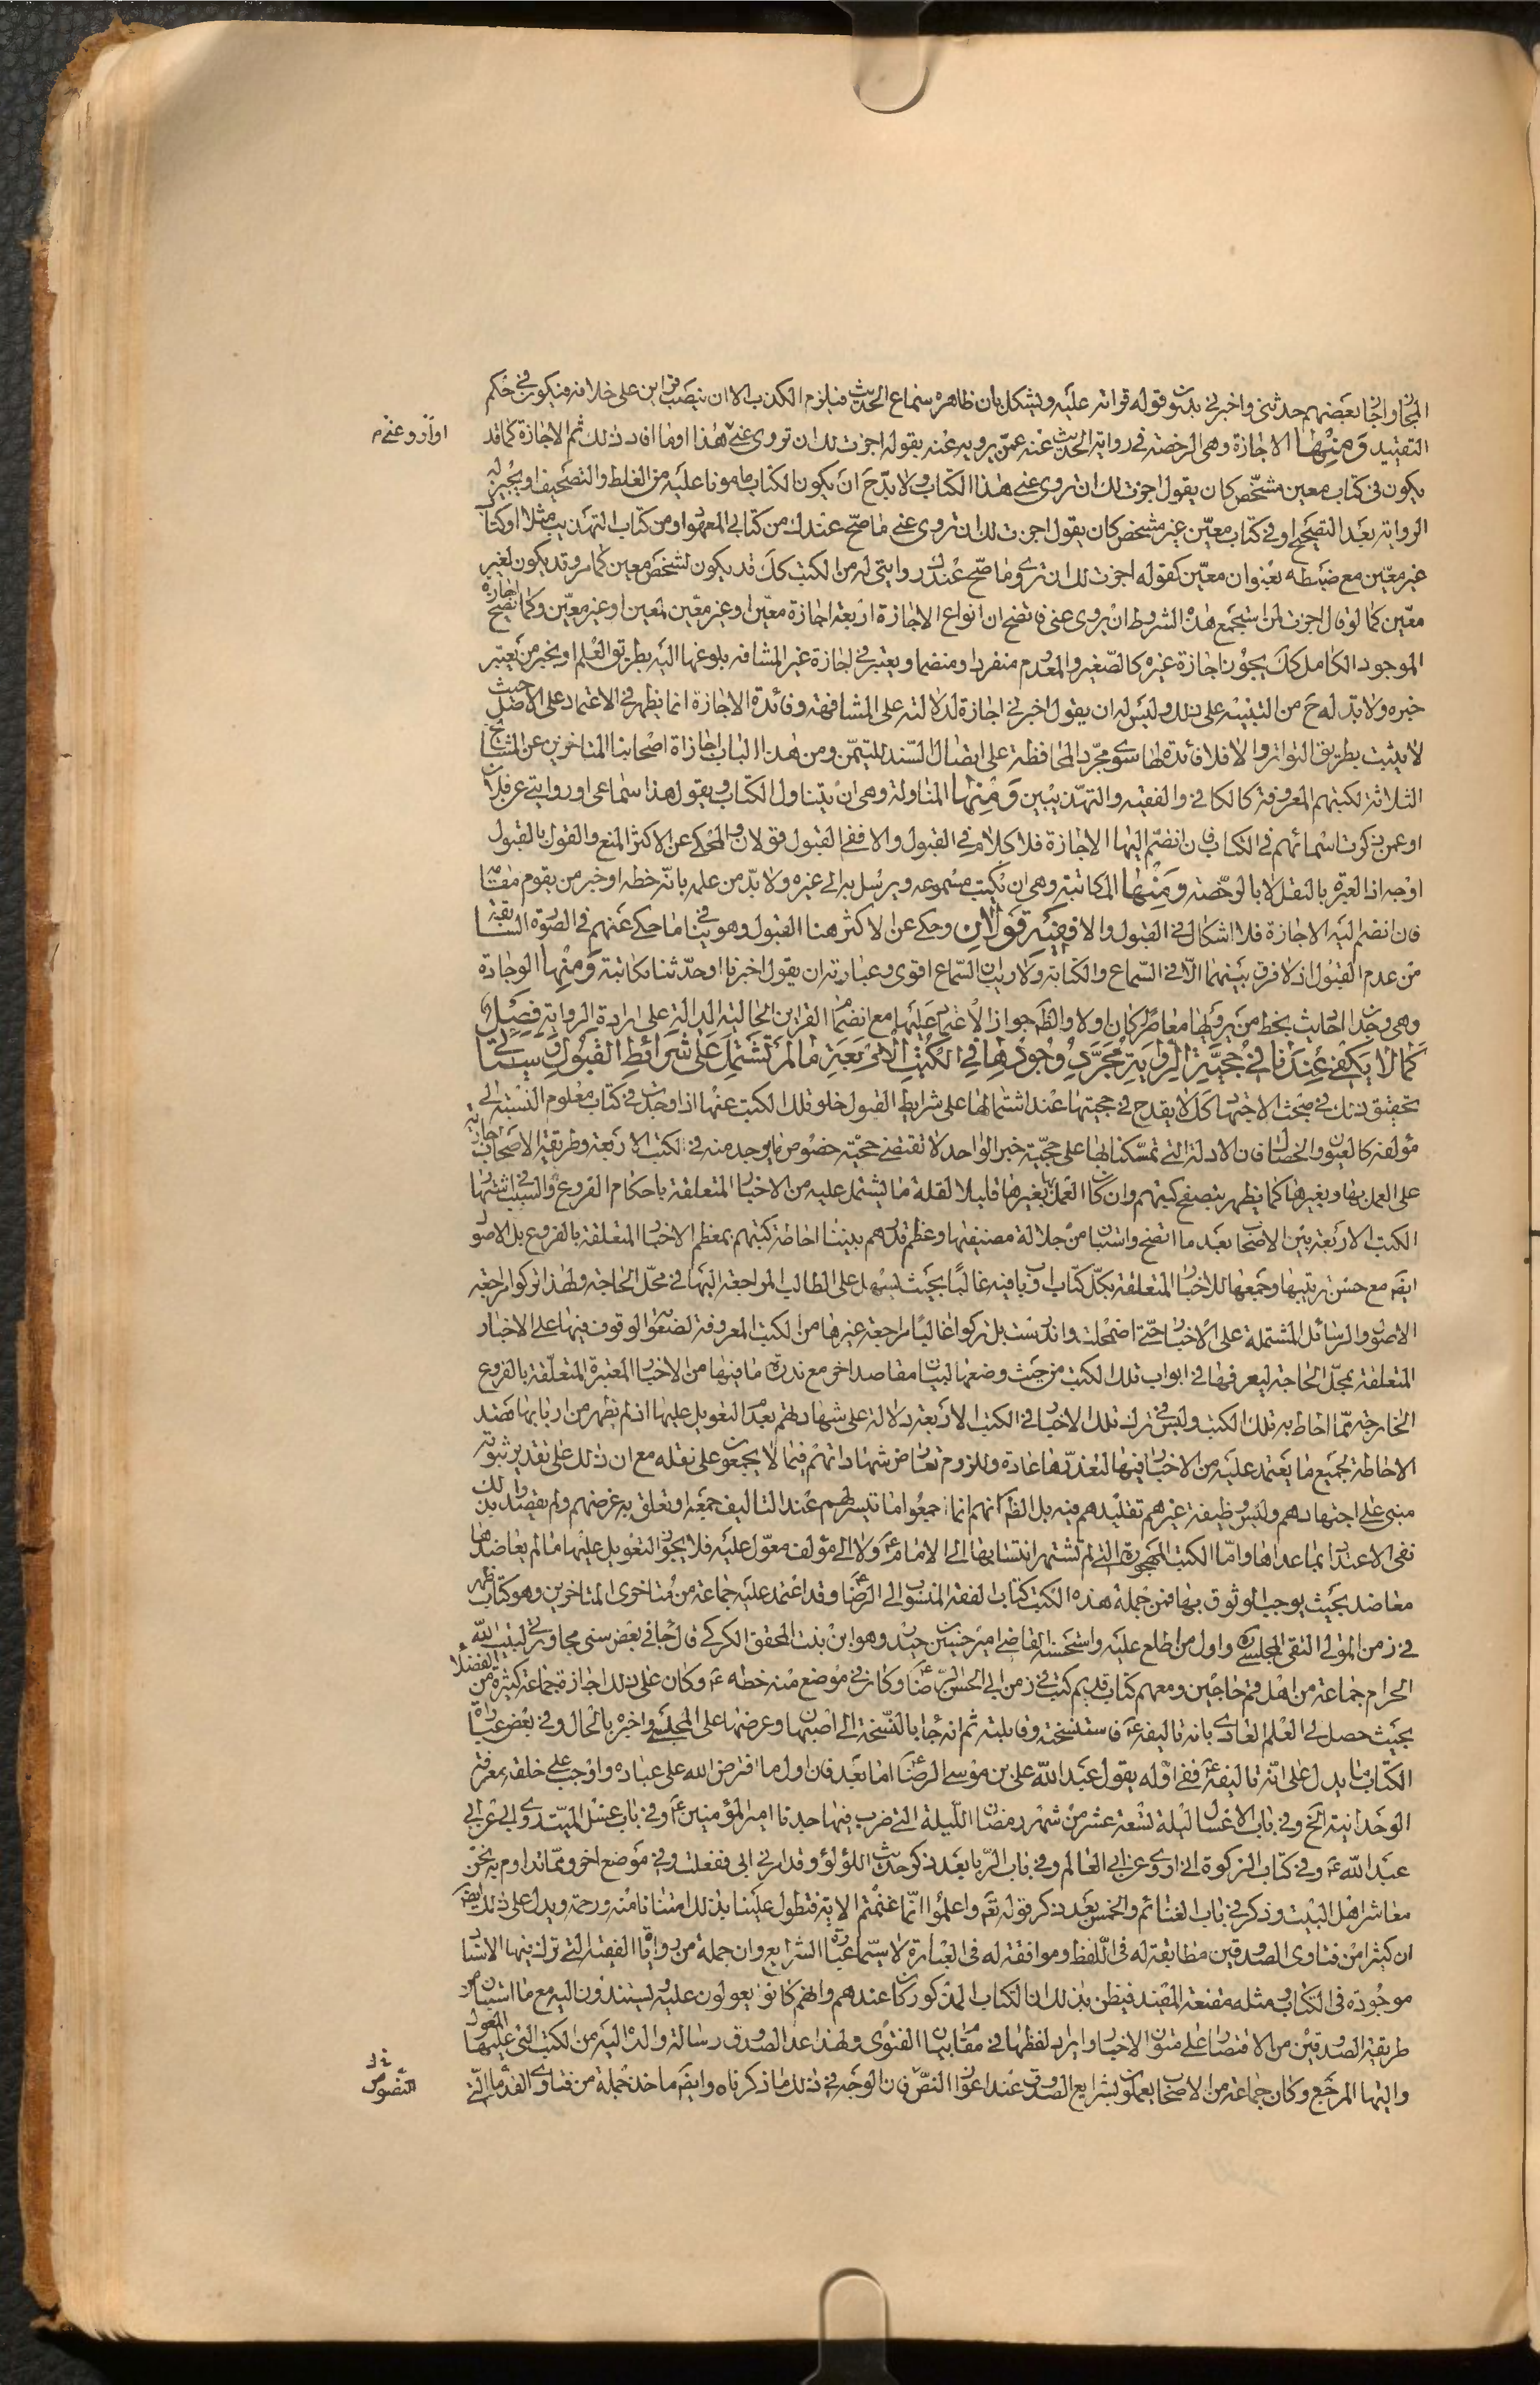 المجاز واجاز بعضهم حدثني واخبرني بدون قوله قراءة عليه ويشكل بان ظاهره سماع الحديث فيلزم الكذب الا ان ينصب قراين على خلافه فيكون في حكم
التقييد ومنها الاجازة وهي الرخصة في رواية الحديث عنه عمن يرويه عنه بقوله اجزت لك ان تروي عني هذا او ما افاد ذلك ثم الاجازة كما قد
او ارو عني م
يكون في كتاب معين مشخص كان يقول اجزت لك ان تروي عني هذا الكتاب ولا بد ح ان يكون الكتاب مامونا عليه من الغلط والتصحيف او يجيز له
الرواية بعد التصحيح او في كتاب معين غير مشخص كان يقول اجزت لك ان تروي عني ما صح عندك من كتابي المعهود او من كتاب التهذيب مثلا او كتاب
غير معين مع ضبطه بعنوان معين كقوله اجزت لك ان تروي ما صح عندك روايتي له من الكتب كك قد يكون لشخص معين كما مر وقد يكون لغير
معين كما لو قال اجزت لمن استجمع هذه الشروط ان يروي عني فاتضح ان انواع الاجازة اربعة اجازة معين او غير معين لمعين او غير معين وكما تصح اجازة
الموجود الكامل كك يجوز اجازة غيره كالصغير والمعدوم منفردا ومنضما ويعتبر في اجازة غير المشافه بلوغها اليه بطريق العلم او بخبر من يعتبر
خبره ولا بد له ح من التنبيه على ذلك وليس له ان يقول اخبرني اجازة لدلالته على المشافهة وفائدة الاجازة انما يظهر في الاعتماد على الاصل حيث
لا يثبت بطريق التواتر والا فلا فائدة لها سوى مجرد المحافظة على اتصال السند للتيمن ومن هذا الباب اجازة اصحابنا المتاخرين عن المشايخ
الثلاثة لكتبهم المعروفة كالكافي والفقيه والتهذيبين ومنها المناولة وهي ان يتناول الكتاب ويقول هذا سماعي او روايتي عن فلان
او عمن ذكرت اسمائهم في الكتاب فان انضم اليها الاجازة فلا كلام في القبول والا ففي القبول قولان والمحكي عن الاكثر المنع والقول بالقبول
اوجه اذ العبرة بالنقل لا بالرخصة ومنها المكاتبة وهي ان يكتب مسموعه ويرسل به الى غيره ولا بد من علمه بانه خطه او خبر من يقوم مقامه
فان انضم اليه الاجازة فلا اشكال في القبول والا ففيه قولان وحكي عن الاكثر هنا القبول وهو ينافي ما حكي عنهم في الصورة السابقة
من عدم القبول اذ لا فرق بينهما الا في السماع والكتابة ولا ريب ان السماع اقوى وعبارته ان يقول اخبرنا او حدثنا مكاتبة ومنها الوجادة
وهي وجدان الحديث بخط من يرويها معاصرا كان اولا والظ جواز الاعتماد عليها مع انضمام القراين الحالية الدالة على ارادة الرواية فصل
كما لا يكفي عندنا في حجية الرواية مجرد وجودها في الكتب الاربعة ما لم تشتمل على شرائط القبول وسياتي
تحقيق ذلك في مبحث الاجتهاد كك لا يقدح في حجيتها عند اشتمالها على شرايط القبول خلو تلك الكتب عنها اذا وجدت في كتاب معلوم النسبة الى
مؤلفه كالعيون والخصال فان الادلة التي تمسكنا بها على حجية خبر الواحد لا تقتضي حجية خصوص ما يوجد منه في الكتب الاربعة وطريقة الاصحاب جارية
على العمل بها وبغيرها كما يظهر بتصفح كتبهم وان كان العمل بغيرها قليلا لقلة ما يشتمل عليه من الاخبار المتعلقة باحكام الفروع والسبب في اشتهار
الكتب الاربعة بين الاصحاب بعد ما اتضح واستبان من جلالة مصنفيها وعظم قدرهم بيننا احاطة كتبهم بمعظم الاخبار المتعلقة بالفروع بل الاصول
ايضا مع حسن ترتيبها وجمعها للاخبار المتعلقة بكل كتاب او باب فيه غالبا بحيث يسهل على الطالب المراجعة اليها في محل الحاجة ولهذا تركوا مراجعة
الاصول والرسائل المشتملة على الاخبار حتى اضمحلت واندرست بل تركوا غالبا مراجعة غيرها من الكتب المعروفة لصعوبة الوقوف فيها على الاخبار
المتعلقة بمحل الحاجة ليعرفها في ابواب تلك الكتب من حيث وضعها لبيان مقاصد اخر مع ندرة ما فيها من الاخبار المعتبرة المتعلقة بالفروع
الخارجة مما احاط به تلك الكتب وليس في ترك تلك الاخبار في الكتب الاربعة دلالة على شهادتهم بعدم التعويل عليها اذ لم يظهر من اربابها قصد
الاحاطة بجميع ما يعتمد عليه من الاخبار فيها لتعذرها عادة وللزوم تعارض شهاداتهم فيما لا يجمعون على نقله مع ان ذلك على تقدير ثبوته
مبني على اجتهادهم وليس وظيفة غيرهم تقليدهم فيه بل الظ انهم انما جمعوا ما تيسر لهم عند التاليف جمعه او تعلق به غرضهم ولم يقصدوا بذلك
نفي الاعتداد بما عداها واما الكتب المهجورة التي لم تشتهر انتسابها الى الامام ع ولا الى مؤلف معول عليه فلا يجوز التعويل عليها ما لم يعاضدها
معاضد بحيث يوجب الوثوق بها فمن جملة هذه الكتب كتاب الفقه المنسوب الى الرضا ع وقد اعتمد عليه جماعة من متاخري المتاخرين وهو كتاب ظهر
في زمن المولى التقي المجلسي ره واول من اطلع عليه واستحسنه القاضي امير حسين حيدر وهو ابن بنت المحقق الكركي قال جاء في بعض سني مجاورتي لبيت الله
الحرام جماعة من اهل قم حاجين ومعهم كتاب قديم كتب في زمن ابي الحسن الرضا ع وكان في موضع منه خطه ع وكان على ذلك اجازة جماعة كثيرة من الفضلاء
بحيث حصل لي العلم العادي بانه تاليفه ع فاستنسخته وقابلته ثم انه جاء بالنسخة الى اصبهان وعرضها على المجلسي واخبره بالحال وفي بعض عبارة
الكتاب ما يدل على انه تاليفه ع ففي اوله يقول عبد الله علي بن موسى الرضا ع اما بعد فان اول ما افترض الله على عباده واوجب على خلقه معرفة
الوحدانية الخ وفي باب الاغسال ليلة تسعة عشر من شهر رمضان الليلة التي ضرب فيها جدنا امير المؤمنين ع وفي باب غسل الميت وروي ابي عن ابي
عبد الله ع وفي كتاب الزكوة اني اروي عن ابي العالم وفي باب الربا بعد ذكر حديث اللؤلؤ وقد امرني ابي ففعلت وفي موضع اخر ومما نداوم به نحن
معاشر اهل البيت وذكر في باب الغنائم والخمس بعد ذكر قوله تع واعلموا انما غنمتم الاية فتطول علينا بذلك امتنانا منه ورحمة ويدل على ذلك ايضا
ان كثيرا من فتاوى الصدوقين مطابقة له في اللفظ وموافقة له في العبارة لا سيما عبارة الشرايع وان جملة من روايات الفقيه التي ترك فيها الاسناد
موجودة في الكتاب ومثله مقنعة المفيد فيظن بذلك ان الكتاب المذكور كان عندهم وانهم كانوا يعولون عليه ويستندون اليه مع ما استبان من
طريقة الصدوقين من الاقتصار على متون الاخبار وايراد لفظها في مقام بيان الفتوى ولهذا عد الصدوق رسالة والده اليه من الكتب التي عليها المعول
واليها المرجع وكان جماعة من الاصحاب يعملون بشرايع الصدوق عند اعواز النص فان الوجه في ذلك ما ذكرناه وايضا ماخذ جملة من فتاوى القدماء التي
النصوص